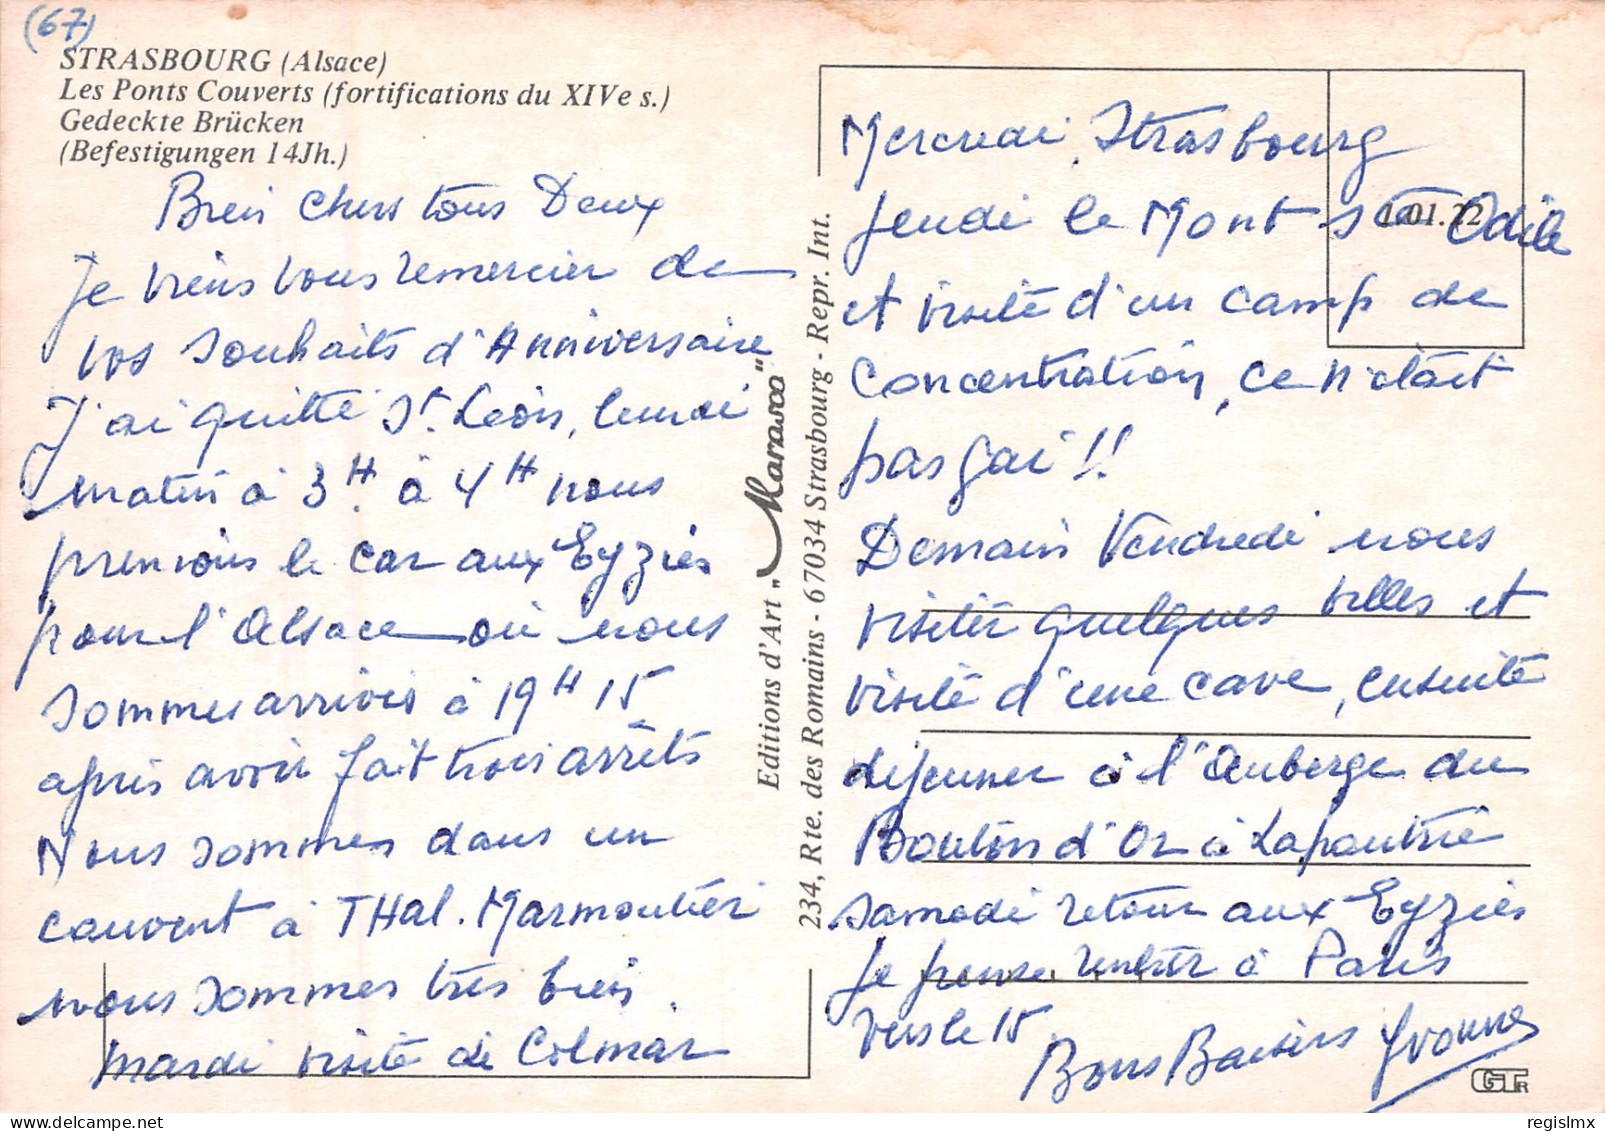 (67)
STRASBOURG (Alsace)
Les Ponts Couverts (fortifications du XIVe s.)
Gedeckte Brücken
(Befestigungen 14Jh.)
Bien chers tous Deux
Je viens vous remercier de
vos souhaits d'Anniversaire
J'ai quitté St. Léon, lundi
matin à 3H. à 4H nous
prenions le car aux Eyzies
pour l'Alsace où nous
sommes arrivés à 19H 15
après avoir fait trois arrêts
Nous sommes dans un
couvent à THal. Marmoutier
nous sommes très bien.
Mardi visite de Colmar
Editions d'Art "Marasco"
234, Rte. des Romains - 67034 Strasbourg - Repr. Int.
Mercredi, Strasbourg
Jeudi le Mont Ste Odile
1.01.22
et visite d'un camp de
Concentration, ce n'était
pas gai !!
Demain Vendredi nous
visiter quelques villes et
visite d'une cave, ensuite
déjeuner à l'auberge du
Bouton d'Or à Lapoutrie
Samedi retour aux Eyzies
Je pense rentrer à Paris
vers le 15
Bons Baisers Yvonne
GTR
regislmx